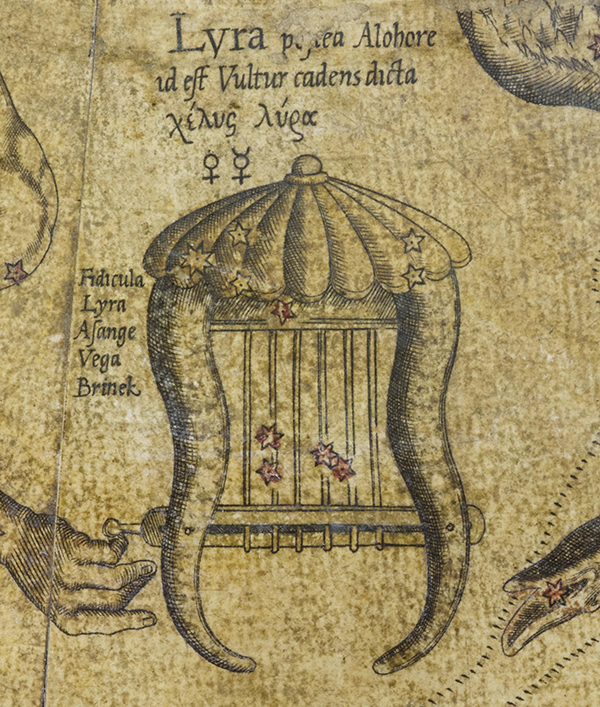 Lyra poſtea Alohore
id eſt Vultur cadens dicta
χέλυς λύρα
♀ ☿
Fidicula
Lyra
Aſange
Vega
Brinek